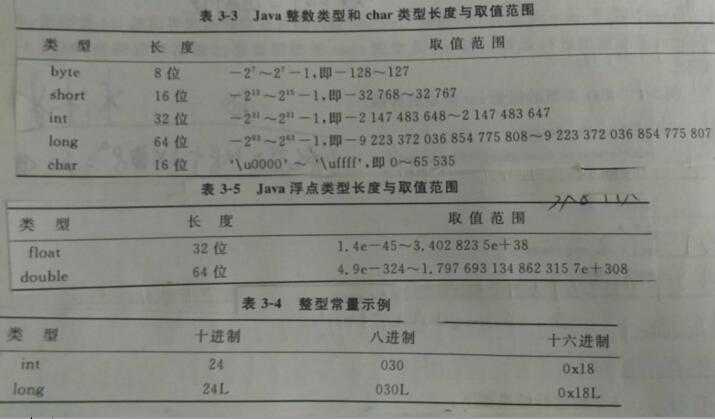 表 3-3 Java 整数类型和 char 类型长度与取值范围
类 型 长 度 取 值 范 围
byte 8 位 －2⁷～2⁷－1,即－128～127
short 16 位 －2¹⁵～2¹⁵－1,即－32 768～32 767
int 32 位 －2³¹～2³¹－1,即－2 147 483 648～2 147 483 647
long 64 位 －2⁶³～2⁶³－1,即－9 223 372 036 854 775 808～9 223 372 036 854 775 807
char 16 位 '\u0000'～'\uffff',即 0～65 535
表 3-5 Java 浮点类型长度与取值范围
类 型 长 度 取 值 范 围
float 32 位 1.4e－45～3.402 823 5e＋38
double 64 位 4.9e－324～1.797 693 134 862 315 7e＋308
表 3-4 整型常量示例
类 型 十进制 八进制 十六进制
int 24 030 0x18
long 24L 030L 0x18L